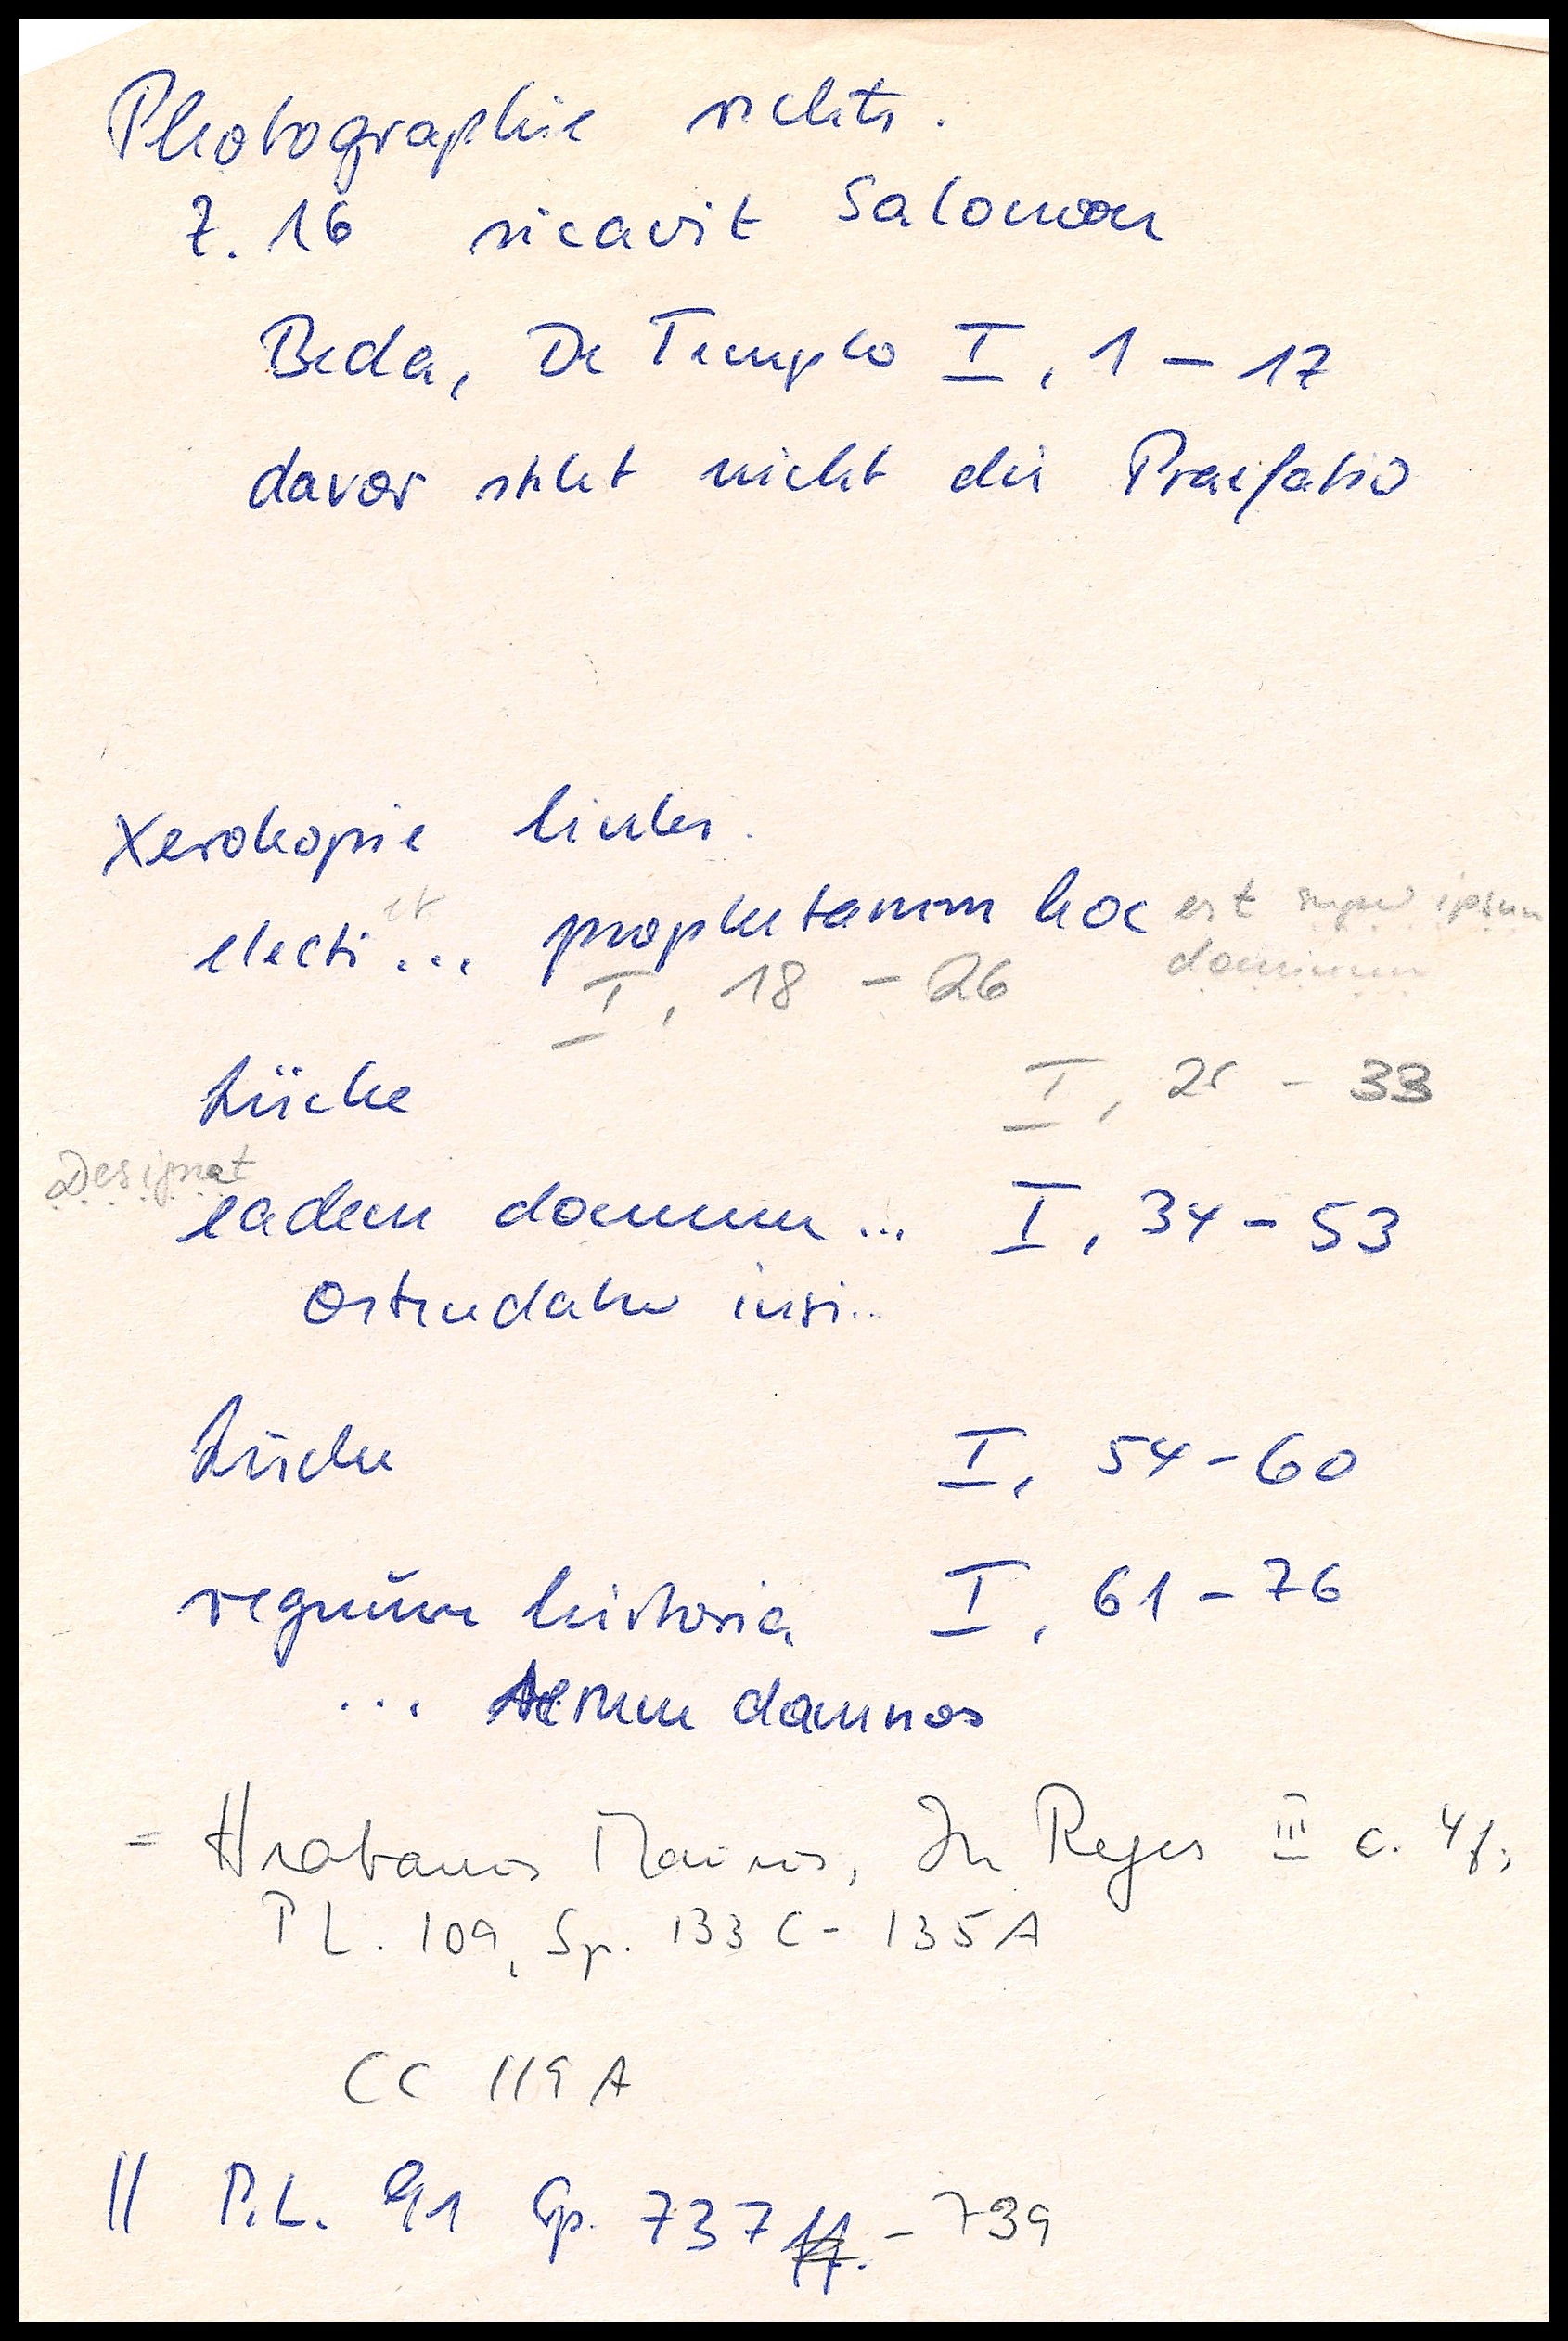 Photographie rechts.
Z. 16 sicavit Salomon
Beda, De Templo I, 1 – 17
davor steht nicht die Praefatio
Xerokopie links.
et
electi ... prophetarum hoc est super ipsum
dominum
I, 18 – 26
Lücke I, 25 – 33
Designat
eadem domum ... I, 34 – 53
ostendatur insi..
Lücke I, 54 – 60
regnum historia I, 61 – 76
... rerum domnos
= Hrabanus Maurus, In Reges III c. 4f,
PL. 109, Sp. 133 C – 135 A
CC 119 A
|| P.L. 91 Sp. 737 ff. – 739